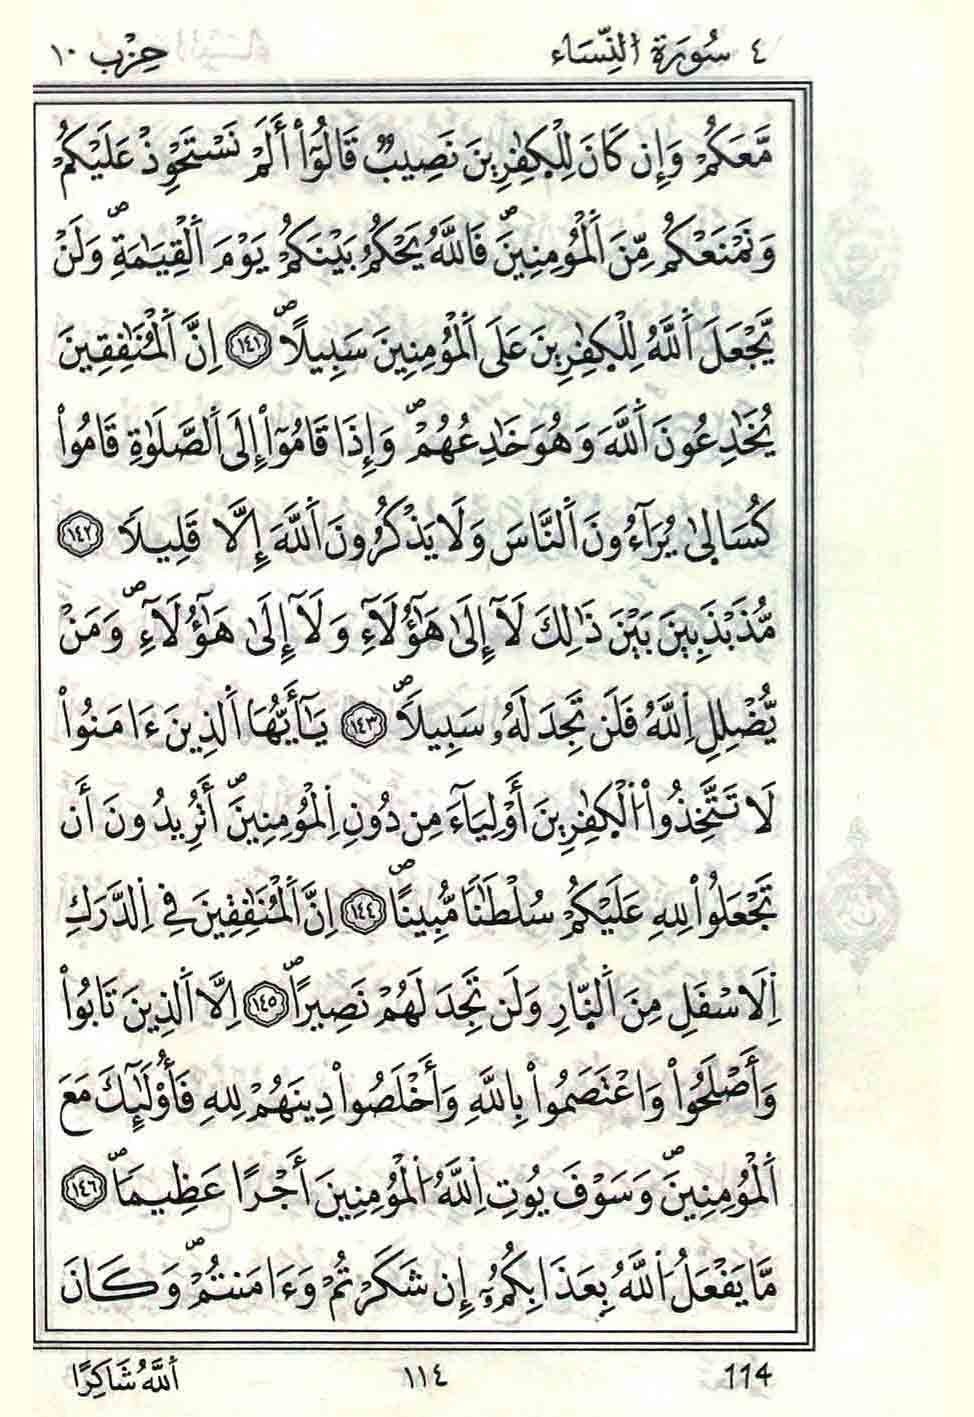 ٤ سُورَةُ اُلنِّسَاء
حِزْب ١٠
مَّعَكُمْ وَإِن كَانَ لِلْكٰفِرِينَ نَصِيبٌ قَالُوٓاْ أَلَمْ نَسْتَحْوِذْ عَلَيْكُمْ
وَنَمْنَعْكُم مِّنَ اَلْمُؤْمِنِينَۖ فَاللَّهُ يَحْكُمُ بَيْنَكُمْ يَوْمَ اَلْقِيَٰمَةِۖ وَلَنْ
يَّجْعَلَ اَللَّهُ لِلْكٰفِرِينَ عَلَى اَلْمُؤْمِنِينَ سَبِيلًاۖ ١٤١ إِنَّ اَلْمُنَٰفِقِينَ
يُخَٰدِعُونَ اَللَّهَ وَهُوَ خَٰدِعُهُمْۖ وَإِذَا قَامُوٓاْ إِلَى اَلصَّلَوٰةِ قَامُواْ
كُسَالىٰ يُرَآءُونَ اَلنَّاسَ وَلَا يَذْكُرُونَ اَللَّهَ إِلَّا قَلِيلًا ١٤٢
مُّذَبْذَبِينَ بَيْنَ ذَٰلِكَ لَآ إِلَىٰ هَٰٓؤُلَآءِ وَلَآ إِلَىٰ هَٰٓؤُلَآءِۖ وَمَنْ
يُّضْلِلِ اِللَّهُ فَلَن تَجِدَ لَهُۥ سَبِيلًاۖ ١٤٣ يَٰٓأَيُّهَا اَلذِينَ ءَامَنُواْ
لَا تَتَّخِذُواْ اُلْكٰفِرِينَ أَوْلِيَآءَ مِن دُونِ اِلْمُؤْمِنِينَۖ أَتُرِيدُونَ أَن
تَجْعَلُواْ لِلهِ عَلَيْكُمْ سُلْطَٰنًا مُّبِينًاۖ ١٤٤ إِنَّ اَلْمُنَٰفِقِينَ فِي اِلدَّرَكِ
اِلَاسْفَلِ مِنَ اَلنَّارِ وَلَن تَجِدَ لَهُمْ نَصِيرًاۖ ١٤٥ اِلَّا اَلذِينَ تَابُواْ
وَأَصْلَحُواْ وَاعْتَصَمُواْ بِاللَّهِ وَأَخْلَصُواْ دِينَهُمْ لِلهِ فَأُوْلَٰٓئِكَ مَعَ
اَلْمُؤْمِنِينَۖ وَسَوْفَ يُوتِ اِللَّهُ اُلْمُؤْمِنِينَ أَجْرًا عَظِيمًاۖ ١٤٦
مَّا يَفْعَلُ اُللَّهُ بِعَذَابِكُمُۥٓ إِن شَكَرْتُمْ وَءَامَنتُمْۖ وَكَانَ
114
١١٤
اَللَّهُ شَاكِرًا